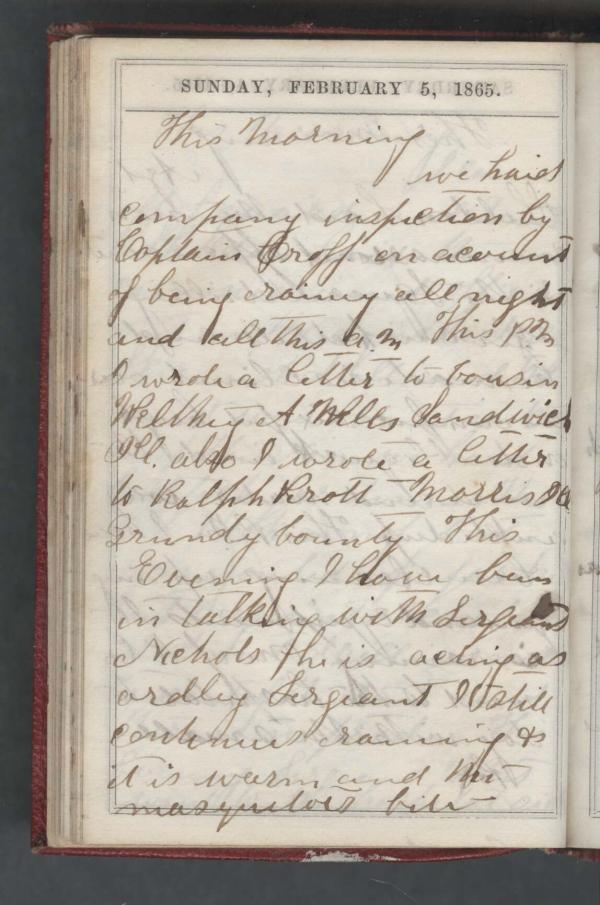 SUNDAY, FEBRUARY 5, 1865.
This Morning
we haid
company inspection by
Captain Croff on account
of being rainy all night
and all this a.m This P.M
I wrote a letter to Cousin
Welthey A Wells Sandwich
Ill. also I wrote a letter
to Ralph Prott Morris Ill
Grundy County This
Evening I have been
in talking with Sergeant
Nichols he is acting as
ordley Sergeant It still
continues raining &
it is warm and the
masquitoes bite